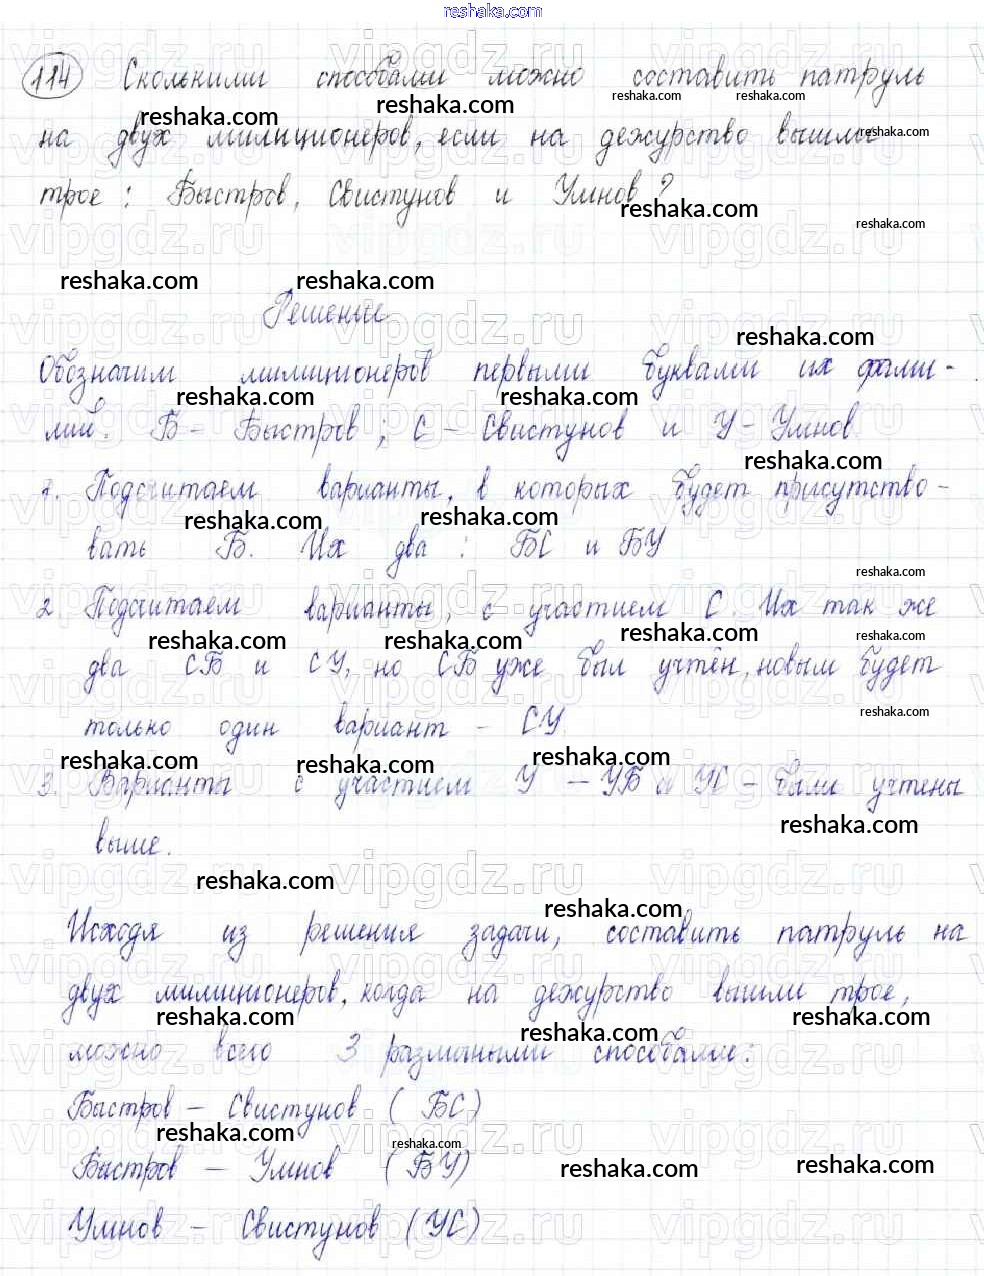 reshaka.com
114 Сколькими способами можно составить патруль
на двух милиционеров, если на дежурство вышли
трое: Быстров, Свистунов и Умнов?
Решение
Обозначим милиционеров первыми буквами их фами-
лий. Б - Быстров; С - Свистунов и У - Умнов.
1. Подсчитаем варианты, в которых будет присутство-
вать Б. Их два: БС и БУ
2. Подсчитаем варианты, с участием С. Их так же
два СБ и СУ, но СБ уже был учтён, новым будет
только один вариант - СУ.
3. Варианты с участием У - УБ и УС - были учтены
выше.
Исходя из решения задачи, составить патруль на
двух милиционеров, когда на дежурство вышли трое,
можно всего 3 различными способами:
Быстров - Свистунов (БС)
Быстров - Умнов (БУ)
Умнов - Свистунов (УС)